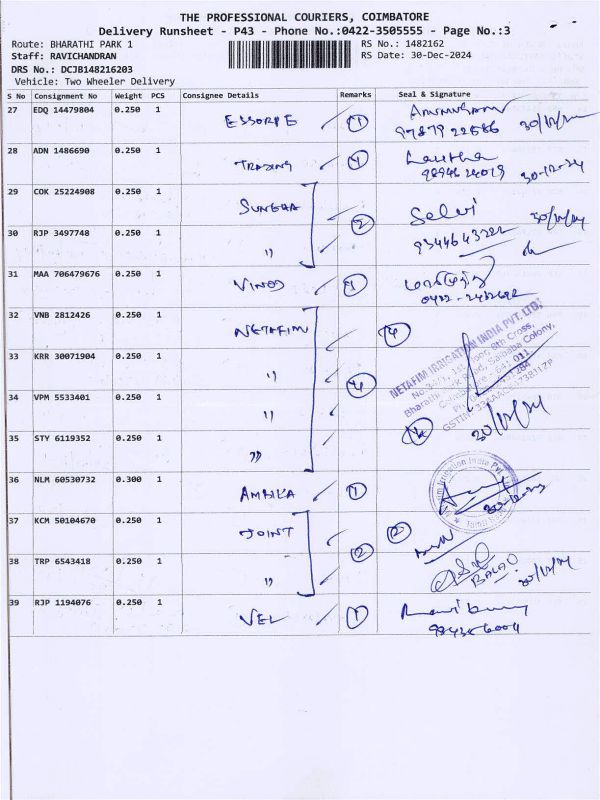 THE PROFESSIONAL COURIERS, COIMBATORE
Delivery Runsheet - P43 - Phone No.:0422-3505555 - Page No.:3
Route: BHARATHI PARK 1
RS No.: 1482162
Staff: RAVICHANDRAN
RS Date: 30-Dec-2024
DRS No.: DCJB148216203
Vehicle: Two Wheeler Delivery
S No Consignment No Weight PCS Consignee Details Remarks Seal & Signature
27 EDQ 14479804 0.250 1 ESSORPE 1
97879 22586
28 ADN 1486690 0.250 1 TRADING 1 Lavitha
30-12-24
29 COK 25224908 0.250 1 SUNGRA 2 Selvi
30 RJP 3497748 0.250 1 "
9344643222
31 MAA 706479676 0.250 1 VINOD 1
32 VNB 2812426 0.250 1 NETAFIM 4
NETAFIM IRRIGATION INDIA PVT. LTD.
33 KRR 30071904 0.250 1 " 4
34 VPM 5533401 0.250 1 "
35 STY 6119352 0.250 1 "
30/12/24
36 NLM 60530732 0.300 1 AMBIKA 1
37 KCM 50104670 0.250 1 JOINT 2 2
38 TRP 6543418 0.250 1 "
BALAJI 30/12/24
39 RJP 1194076 0.250 1 VEL 1